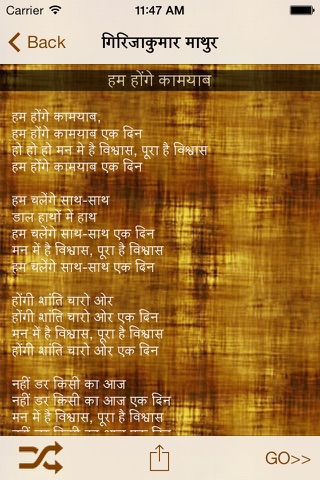 Carrier 11:47 AM
Back गिरिजाकुमार माथुर
हम होंगे कामयाब
हम होंगे कामयाब,
हम होंगे कामयाब एक दिन
हो हो हो मन मे है विश्वास, पूरा है विश्वास
हम होंगे कामयाब एक दिन
हम चलेंगे साथ-साथ
डाल हाथों में हाथ
हम चलेंगे साथ-साथ एक दिन
मन में है विश्वास, पूरा है विश्वास
हम चलेंगे साथ-साथ एक दिन
होंगी शांति चारो ओर
होंगी शांति चारो ओर एक दिन
मन में है विश्वास, पूरा है विश्वास
होंगी शांति चारो ओर एक दिन
नहीं डर किसी का आज
नहीं डर किसी का आज एक दिन
मन में है विश्वास, पूरा है विश्वास
नहीं डर किसी का आज एक दिन
GO>>